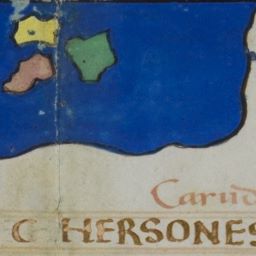 Carud
C HERSONES